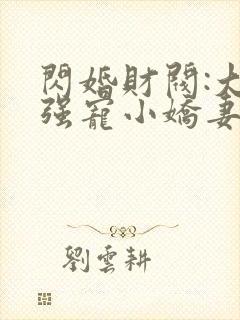 閃婚財閥:大
强寵小嬌妻
劉雲耕